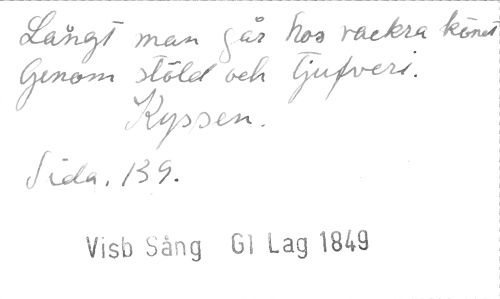 Långt man går hos vackra könet
Genom stöld och tjufveri.
Kyssen.
Sida. 139.
Visb Sång Gl Lag 1849